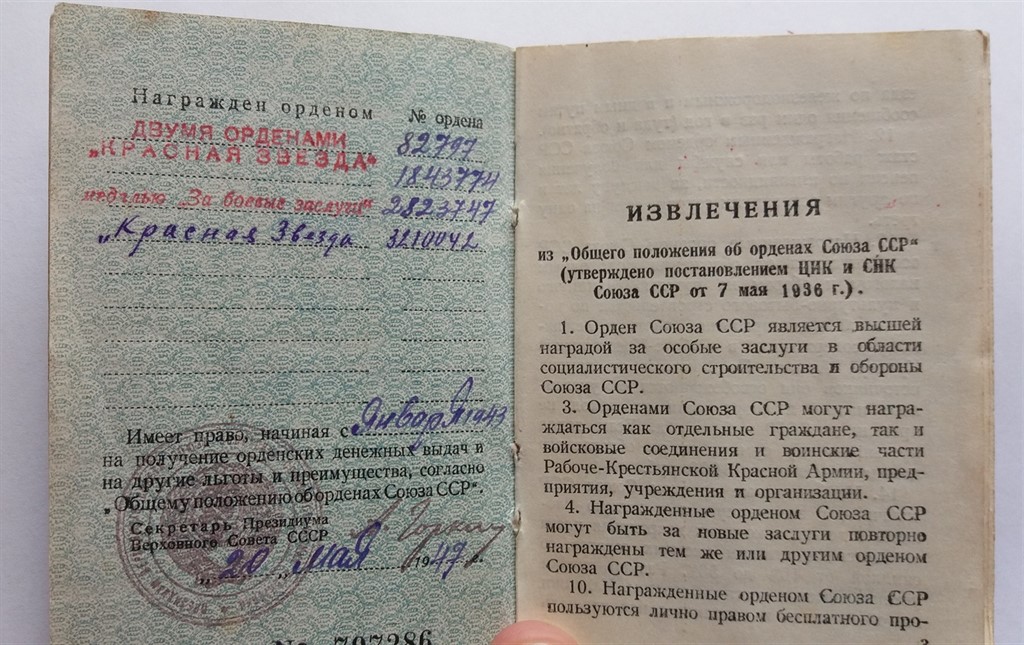 Награжден орденом № ордена
ДВУМЯ ОРДЕНАМИ 82797
„КРАСНАЯ ЗВЕЗДА“
1843774
медалью „За боевые заслуги“ 2823747
„Красная Звезда 3210042
Имеет право, начиная с Января 1943
на получение орденских денежных выдач и
на другие льготы и преимущества, согласно
„Общему положению об орденах Союза ССР“.
Секретарь Президиума
Верховного Совета СССР
„20„ мая 1947 г.
№ 797286
ИЗВЛЕЧЕНИЯ
из „Общего положения об орденах Союза ССР“
(утверждено постановлением ЦИК и СНК
Союза ССР от 7 мая 1936 г.).
1. Орден Союза ССР является высшей
наградой за особые заслуги в области
социалистического строительства и обороны
Союза ССР.
3. Орденами Союза ССР могут награ-
ждаться как отдельные граждане, так и
войсковые соединения и воинские части
Рабоче-Крестьянской Красной Армии, пред-
приятия, учреждения и организации.
4. Награжденные орденом Союза ССР
могут быть за новые заслуги повторно
награждены тем же или другим орденом
Союза ССР.
10. Награжденные орденом Союза ССР
пользуются лично правом бесплатного про-